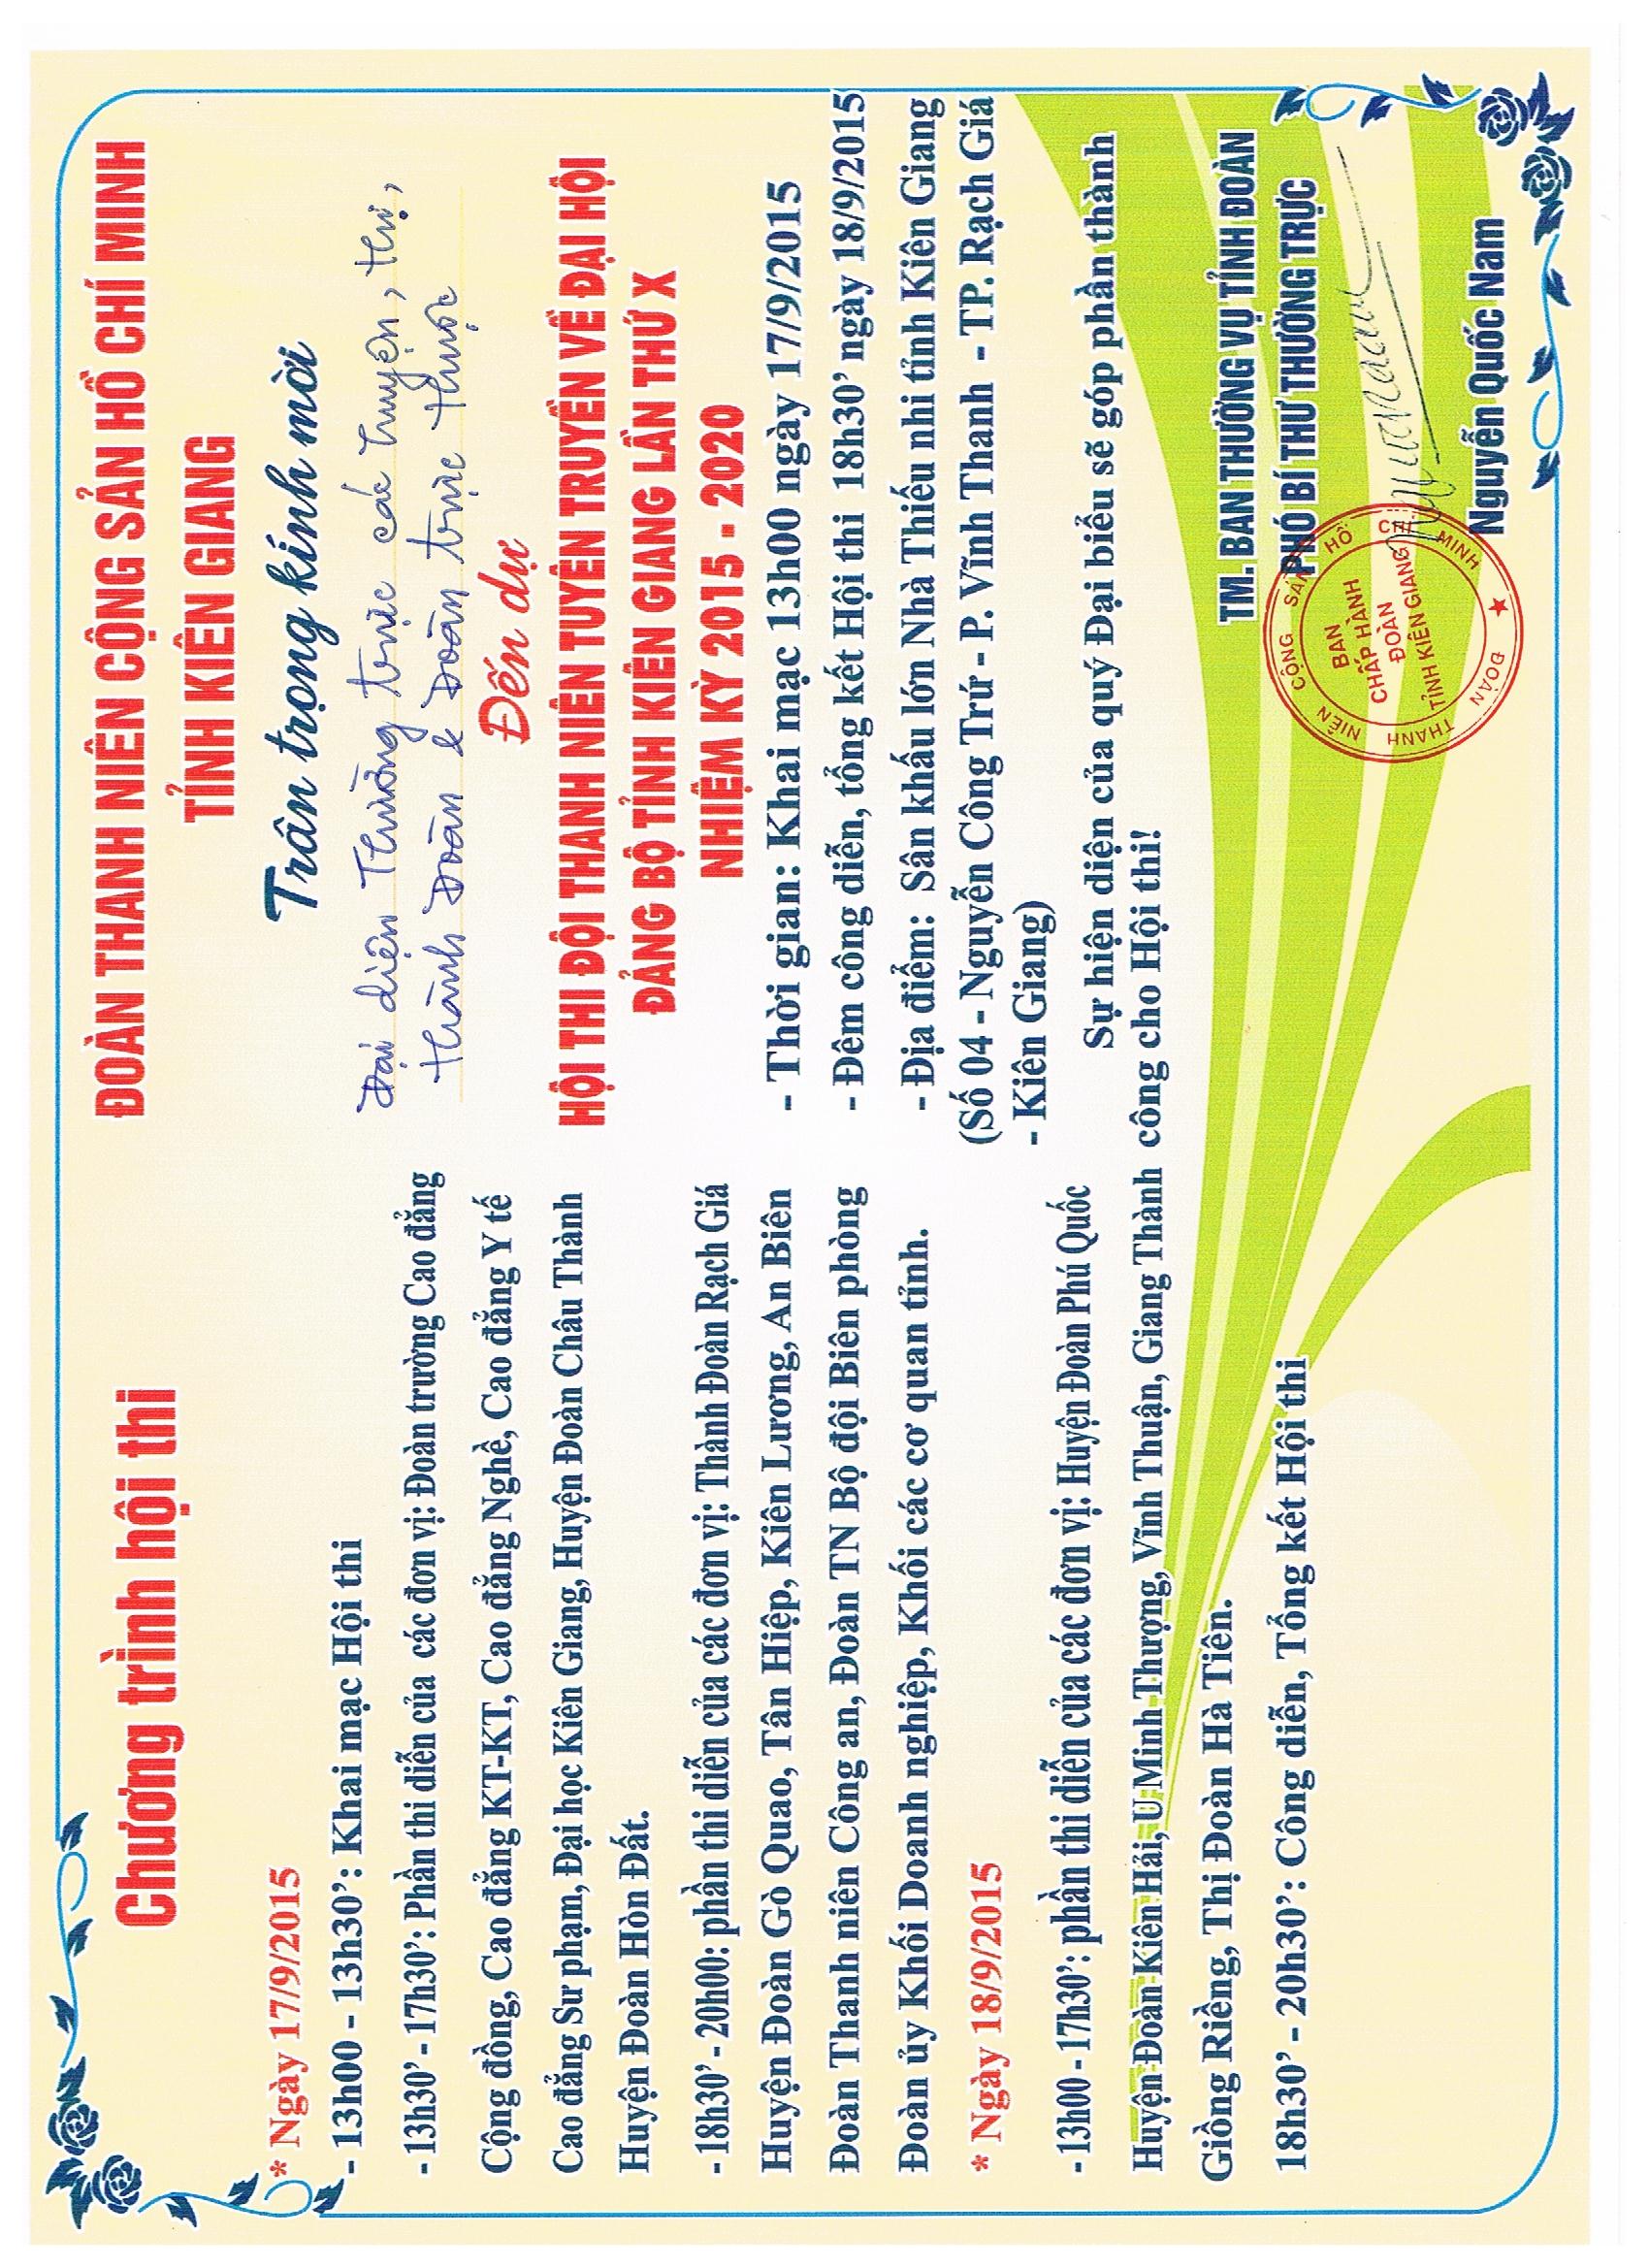 Chương trình hội thi
* Ngày 17/9/2015
- 13h00 - 13h30’: Khai mạc Hội thi
- 13h30’ - 17h30’: Phần thi diễn của các đơn vị: Đoàn trường Cao đẳng
Cộng đồng, Cao đẳng KT-KT, Cao đẳng Nghề, Cao đẳng Y tế
Cao đẳng Sư phạm, Đại học Kiên Giang, Huyện Đoàn Châu Thành
Huyện Đoàn Hòn Đất.
- 18h30’ - 20h00: phần thi diễn của các đơn vị: Thành Đoàn Rạch Giá
Huyện Đoàn Gò Quao, Tân Hiệp, Kiên Lương, An Biên
Đoàn Thanh niên Công an, Đoàn TN Bộ đội Biên phòng
Đoàn ủy Khối Doanh nghiệp, Khối các cơ quan tỉnh.
* Ngày 18/9/2015
- 13h00 - 17h30’: phần thi diễn của các đơn vị: Huyện Đoàn Phú Quốc
Huyện Đoàn Kiên Hải, U Minh Thượng, Vĩnh Thuận, Giang Thành
Giồng Riềng, Thị Đoàn Hà Tiên.
18h30’ - 20h30’: Công diễn, Tổng kết Hội thi
ĐOÀN THANH NIÊN CỘNG SẢN HỒ CHÍ MINH
TỈNH KIÊN GIANG
Trân trọng kính mời
Đại diện Thường trực các huyện, thị,
thành Đoàn & Đoàn trực thuộc
Đến dự
HỘI THI ĐỘI THANH NIÊN TUYÊN TRUYỀN VỀ ĐẠI HỘI
ĐẢNG BỘ TỈNH KIÊN GIANG LẦN THỨ X
NHIỆM KỲ 2015 - 2020
- Thời gian: Khai mạc 13h00 ngày 17/9/2015
- Đêm công diễn, tổng kết Hội thi 18h30’ ngày 18/9/2015
- Địa điểm: Sân khấu lớn Nhà Thiếu nhi tỉnh Kiên Giang
(Số 04 - Nguyễn Công Trứ - P. Vĩnh Thanh - TP. Rạch Giá
- Kiên Giang)
Sự hiện diện của quý Đại biểu sẽ góp phần thành
công cho Hội thi!
TM. BAN THƯỜNG VỤ TỈNH ĐOÀN
PHÓ BÍ THƯ THƯỜNG TRỰC
ĐOÀN THANH NIÊN CỘNG SẢN HỒ CHÍ MINH
BAN
CHẤP HÀNH
ĐOÀN
TỈNH KIÊN GIANG
Nguyễn Quốc Nam